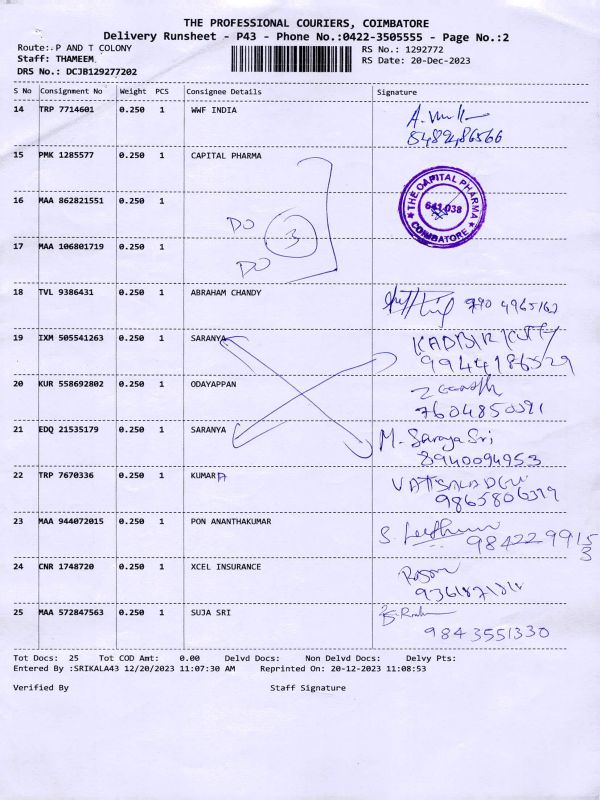 THE PROFESSIONAL COURIERS, COIMBATORE
Delivery Runsheet - P43 - Phone No.:0422-3505555 - Page No.:2
Route: P AND T COLONY RS No.: 1292772
Staff: THAMEEM RS Date: 20-Dec-2023
DRS No.: DCJB129277202
S No Consignment No Weight PCS Consignee Details Signature
14 TRP 7714601 0.250 1 WWF INDIA
8489486566
15 PMK 1285577 0.250 1 CAPITAL PHARMA
THE CAPITAL PHARMA
16 MAA 862821551 0.250 1 641 038
COIMBATORE
DO 3
17 MAA 106801719 0.250 1
DO
18 TVL 9386431 0.250 1 ABRAHAM CHANDY
790 4965162
19 IXM 505541263 0.250 1 SARANYA KADBIR KUTTY
9944186529
20 KUR 558692802 0.250 1 ODAYAPPAN
7604850591
21 EDQ 21535179 0.250 1 SARANYA M. Saraya Sri
8940094953
22 TRP 7670336 0.250 1 KUMAR A
9865806379
23 MAA 944072015 0.250 1 PON ANANTHAKUMAR S.
984229915
3
24 CNR 1748720 0.250 1 XCEL INSURANCE
25 MAA 572847563 0.250 1 SUJA SRI
9843551330
Tot Docs: 25 Tot COD Amt: 0.00 Delvd Docs: Non Delvd Docs: Delvy Pts:
Entered By :SRIKALA43 12/20/2023 11:07:30 AM Reprinted On: 20-12-2023 11:08:53
Verified By Staff Signature